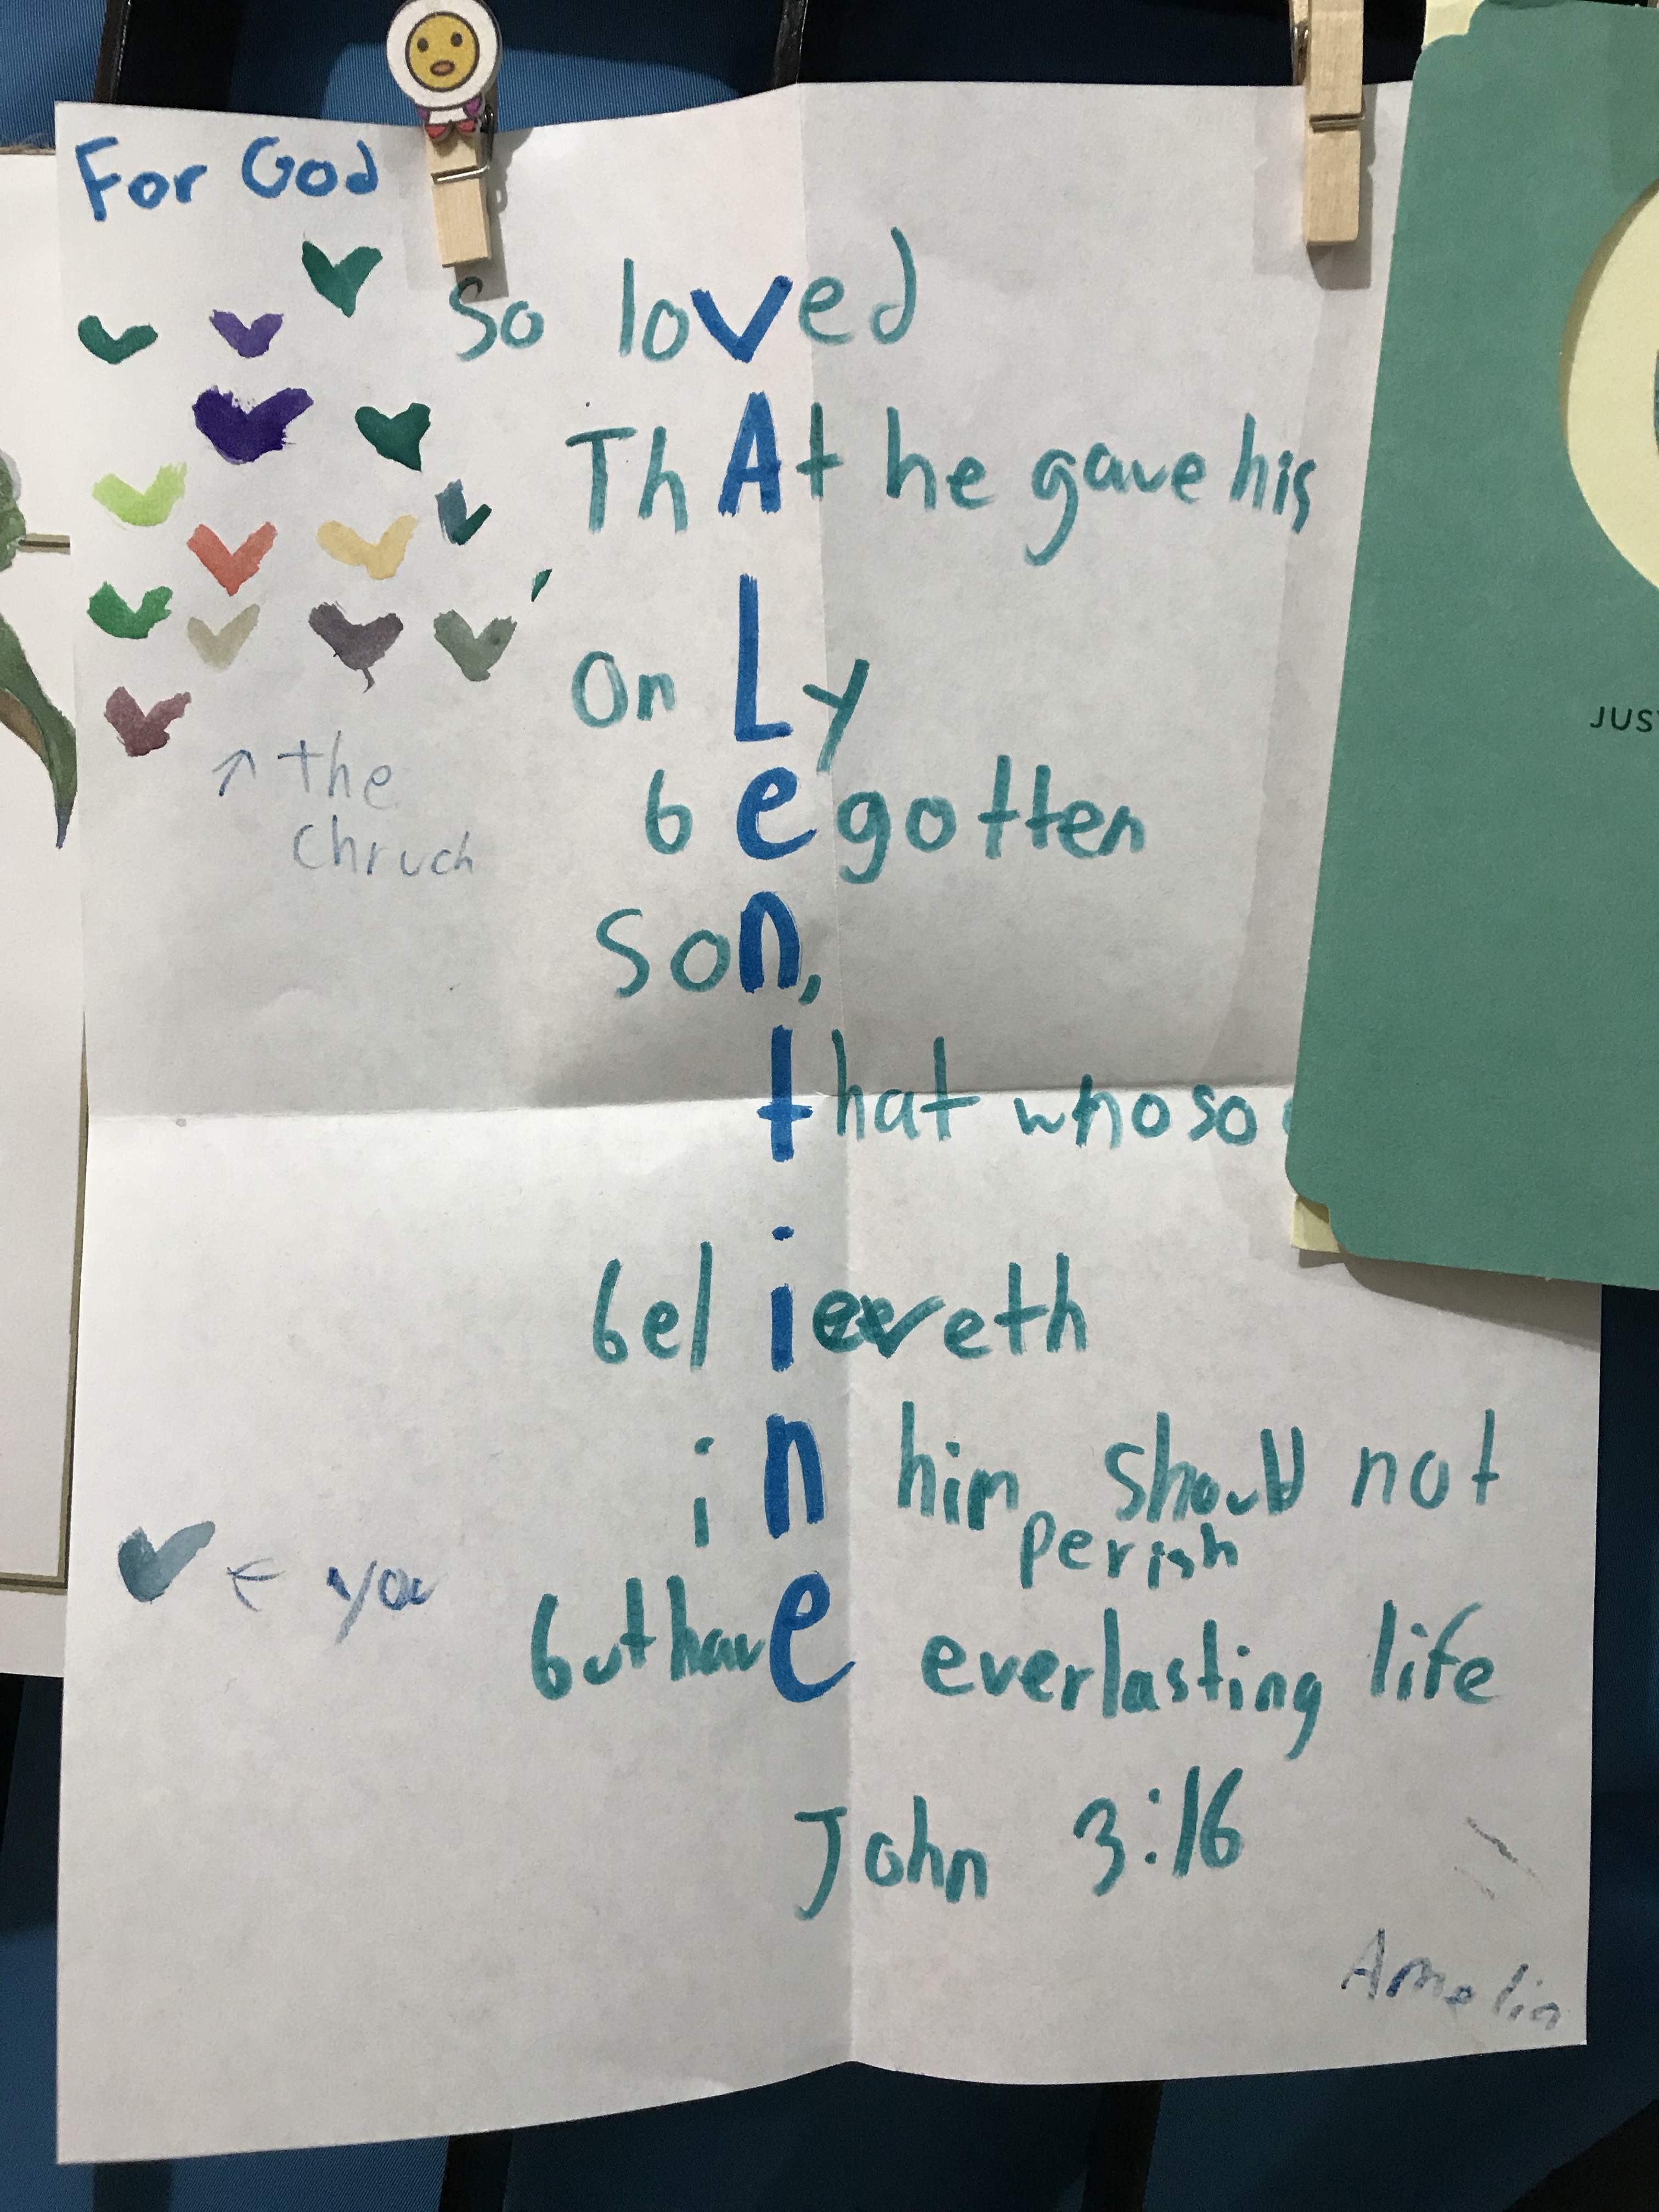 For God
so loved
ThAt he gave his
OnLy
begotten
Son,
that whoso
belieeveth
in him should not
perish
but have everlasting life
John 3:16
↑ the
chruch
← you
Amelia
JUS